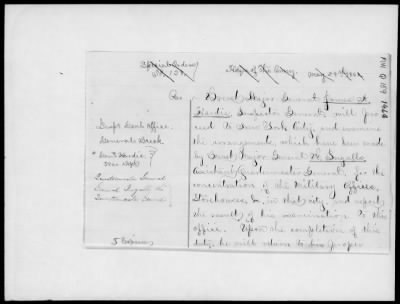 Special Orders
No. 125
Hdqrs of the Army
May 24th 1864
Brevet Major General James A.
Hardie, Inspector General, will pro-
ceed to New York City, and examine
the arrangements, which have been made
by Brevet Major General R. Ingalls
Assistant Quartermaster General, for the
concentration of the Military Offices,
Storehouses, &c, in that city, and report
the result of his examination to this
office. Upon the completion of this
duty, he will return to his proper
Generals Book
Genl Hardie
New York
Quartermaster General
General Ingalls
5 Copies